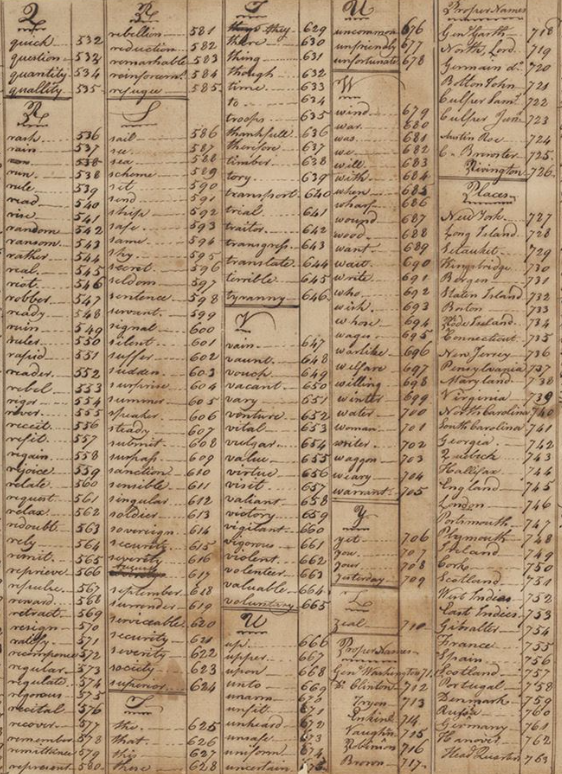 Q
quick 532
question 533
quantity 534
quallity 535
R
rash 536
rain 537
538
run 538
rule 539
read 540
rise 541
random 542
ransom 543
rather 544
real 545
riot 546
robber 547
ready 548
ruin 549
rules 550
rapid 551
reader 552
rebel 553
rigor 554
river 555
receit 556
refit 557
regain 558
rejoice 559
relate 560
request 561
relax 562
redoubt 563
rely 564
remit 565
reprieve 566
repulse 567
reward 568
retract 569
resign 570
ratify 571
recompence 572
regular 573
regulate 574
rigorous 575
recital 576
recover 577
remember 578
remittance 579
represent 580
R
rebellion 581
reduction 582
remarkable 583
reinforcement 584
refugee 585
S
sail 586
see 587
sea 588
scheme 589
set 590
send 591
ship 592
safe 593
same 594
sky 595
secret 596
seldom 597
sentence 598
servant 599
signal 600
silent 601
suffer 602
sudden 603
surprise 604
summer 605
speaker 606
steady 607
submit 608
surpass 609
sanction 610
sensible 611
singular 612
soldier 613
sovereign 614
security 615
seventy 616
617
september 618
surrender 619
serviceable 620
security 621
severity 622
society 623
superior 624
T
the 625
that 626
this 627
these 628
T
they 629
there 630
thing 631
though 632
time 633
to 634
troops 635
thankfull 636
therefore 637
timber 638
tory 639
transport 640
trial 641
traitor 642
transgress 643
translate 644
terrible 645
tyranny 646
V
vain 647
vaunt 648
vouch 649
vacant 650
vary 651
venture 652
vital 653
vulgar 654
value 655
virtue 656
visit 657
valiant 658
victory 659
vigilant 660
vigorous 661
violent 662
volenteer 663
valuable 664
voluntary 665
U
up 666
upper 667
upon 668
unto 669
unarm 670
unfit 671
unheard 672
unsafe 673
uniform 674
uncertain 675
U
uncommon 676
unfriendly 677
unfortunate 678
W
wind 679
war 680
was 681
we 682
will 683
with 684
when 685
wharf 686
wound 687
wood 688
want 689
wait 690
write 691
who 692
wish 693
whose 694
wages 695
warlike 696
welfare 697
willing 698
winter 699
water 700
woman 701
writer 702
waggon 703
weary 704
warrant 705
Y
yet 706
you 707
your 708
yesterday 709
Z
zeal 710
Proper Names
Gen Washington 711
Do Clinton 712
Tryon 713
Erskine 714
Vaughn 715
Robinson 716
Brown 717
Proper Names
Gen Garth 718
North, Lord 719
Germain do 720
Bolton John 721
Culper Sam 722
Culper Jun 723
Austin Roe 724
C. Brewster 725
Rivington 726
Places
New York 727
Long Island 728
Setauket 729
Kingsbridge 730
Bergen 731
Staten Island 732
Boston 733
Rhode Island 734
Connecticut 735
New Jersey 736
Pensylvania 737
Maryland 738
Virginia 739
North carolina 740
South carolina 741
Georgia 742
Quebeck 743
Hallifax 744
England 745
London 746
Portsmouth 747
Plymouth 748
Ireland 749
Corke 750
Scotland 751
West Indies 752
East Indies 753
Gibralter 754
France 755
Spain 756
Scotland 757
Portugal 758
Denmark 759
Russia 760
Germany 761
Hanover 762
Head Quarters 763